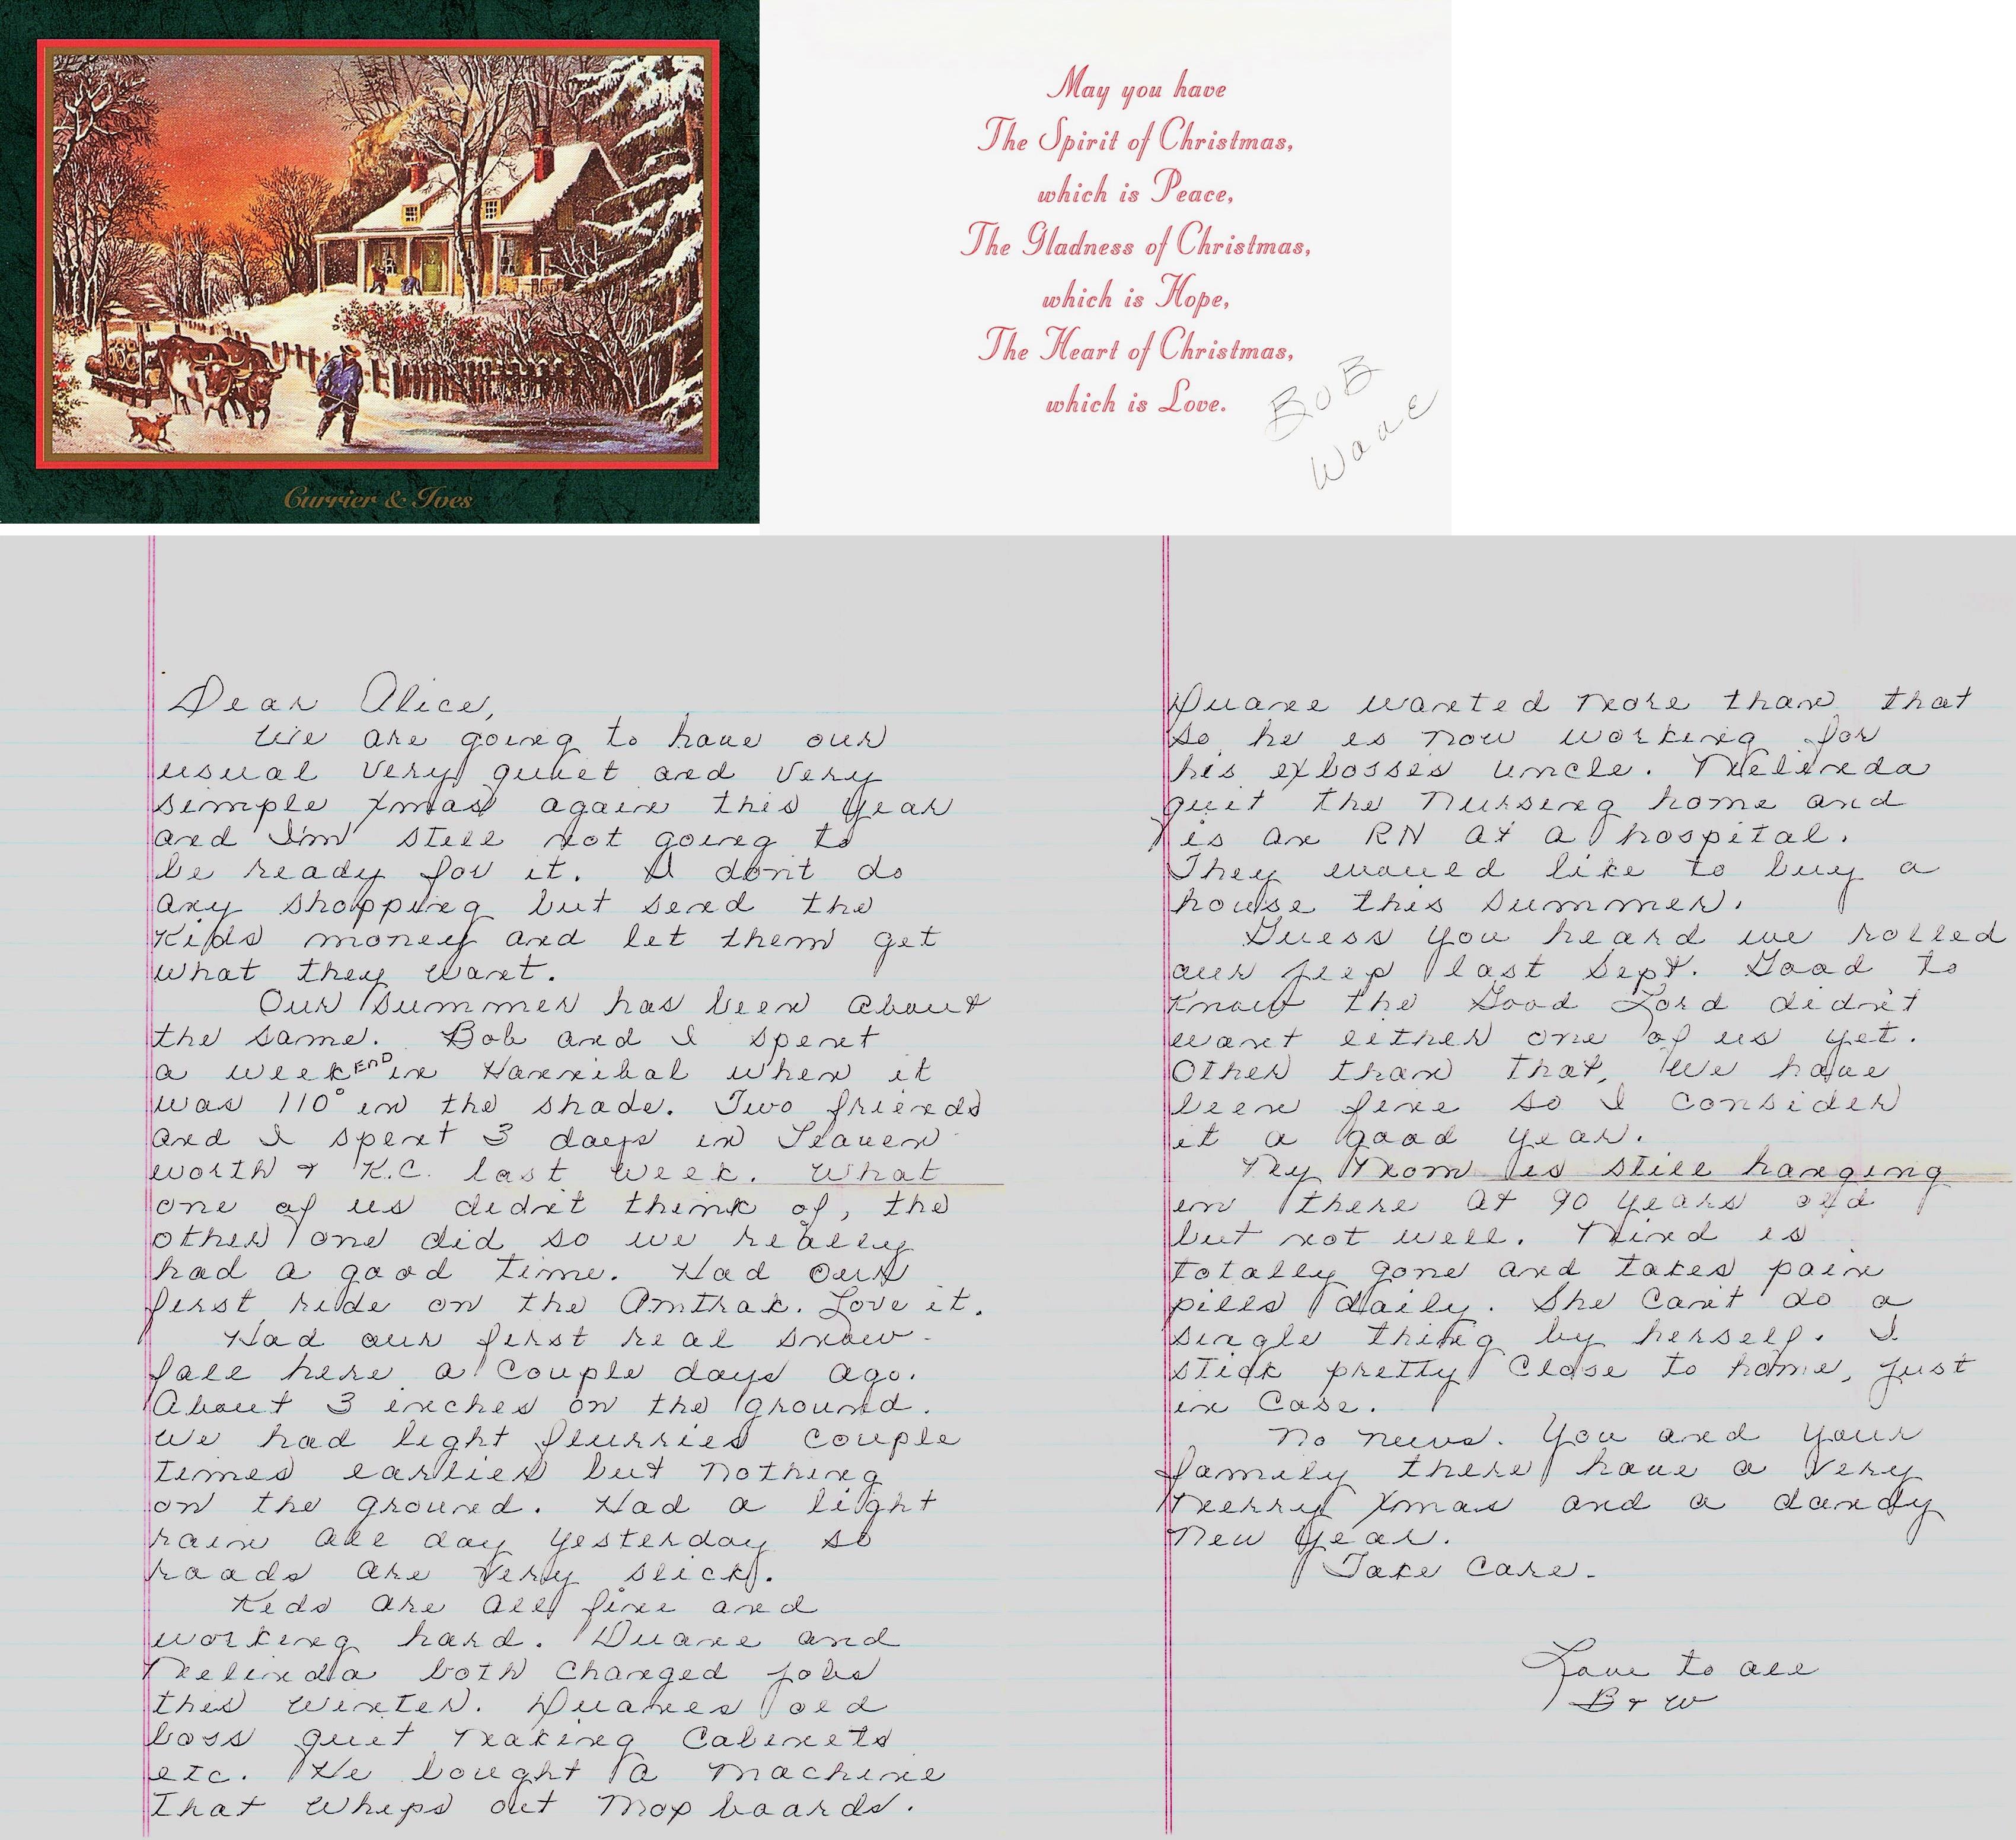 Currier & Ives
May you have
The Spirit of Christmas,
which is Peace,
The Gladness of Christmas,
which is Hope,
The Heart of Christmas,
which is Love.
BOB
Dear Alice,
We are going to have our
usual very quiet and very
simple Xmas again this year
and I'm still not going to
be ready for it. I don't do
any shopping but send the
kids money and let them get
what they want.
Our summer has been about
the same. Bob and I spent
a weekEND in Hannibal when it
was 110° in the shade. Two friends
and I spent 3 days in Leaven-
worth & K.C. last week. What
one of us didn't think of, the
other one did so we really
had a good time. Had our
first ride on the Amtrak. Love it.
Had our first real snow-
fall here a couple days ago.
About 3 inches on the ground.
We had light flurries couple
times earlier but nothing
on the ground. Had a light
rain all day yesterday so
roads are very slick.
Kids are all fine and
working hard. Duane and
Melinda both changed jobs
this winter. Duanes old
boss quit making cabinets
etc. He bought a machine
that whips out mop boards.
Duane wanted more than that
so he is now working for
his exbosses uncle. Melinda
quit the nursing home and
is an RN at a hospital.
They would like to buy a
house this summer.
Guess you heard we rolled
our jeep last Sept. Good to
know the Good Lord didn't
want either one of us yet.
Other than that, we have
been fine so I consider
it a good year.
My Mom is still hanging
in there at 90 years old
but not well. Mind is
totally gone and takes pain
pills daily. She can't do a
single thing by herself. I
stick pretty close to home, just
in case.
No news. You and your
family there have a very
merry Xmas and a dandy
New Year.
Take care.
Love to all
B & W